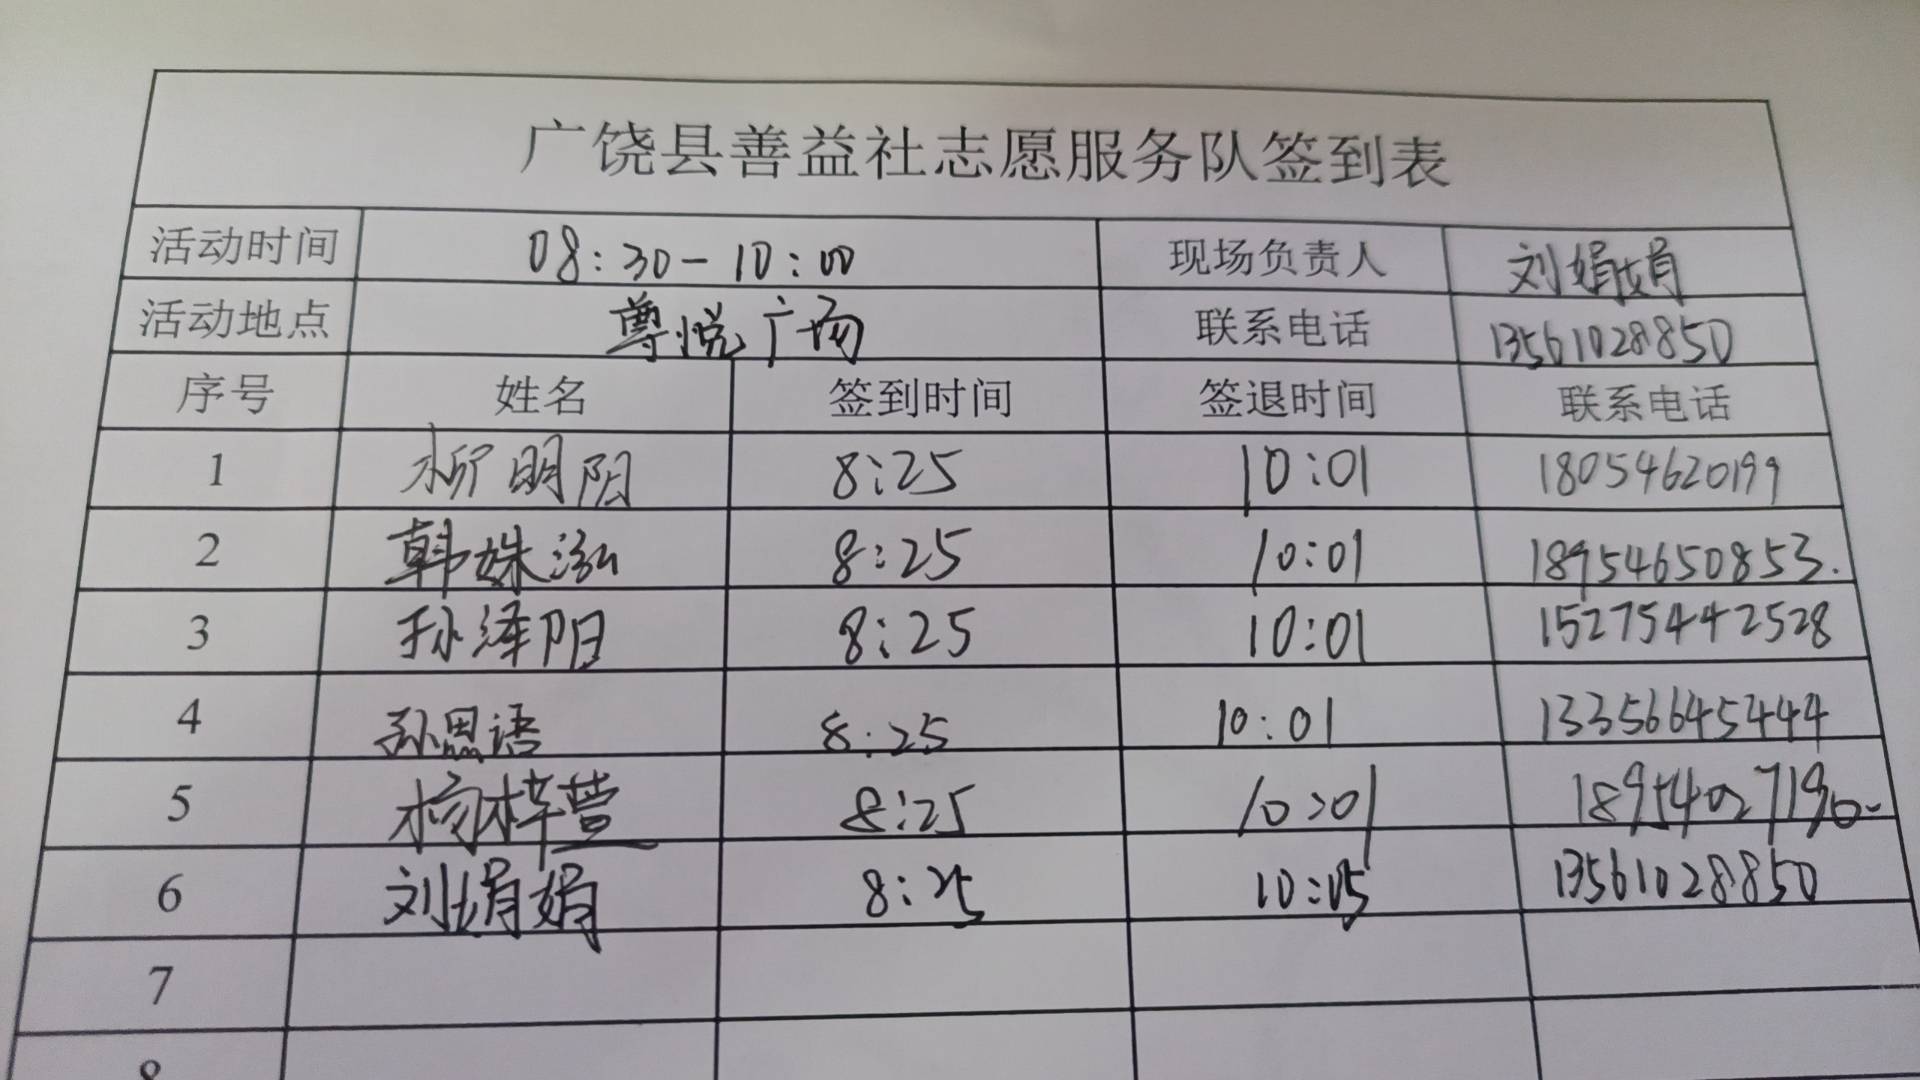 广饶县善益社志愿服务队签到表
活动时间 08:30-10:00 现场负责人 刘娟娟
活动地点 尊悦广场 联系电话 13561028850
序号 姓名 签到时间 签退时间 联系电话
1 明阳 8:25 10:01 18054620199
2 韩姝泓 8:25 10:01 18954650853.
3 孙泽阳 8:25 10:01 15275442528
4 孙思语 8:25 10:01 13356645444
5 杨梓萱 8:25 10:01 18954027196
6 刘娟娟 8:25 10:05 13561028850
7
8